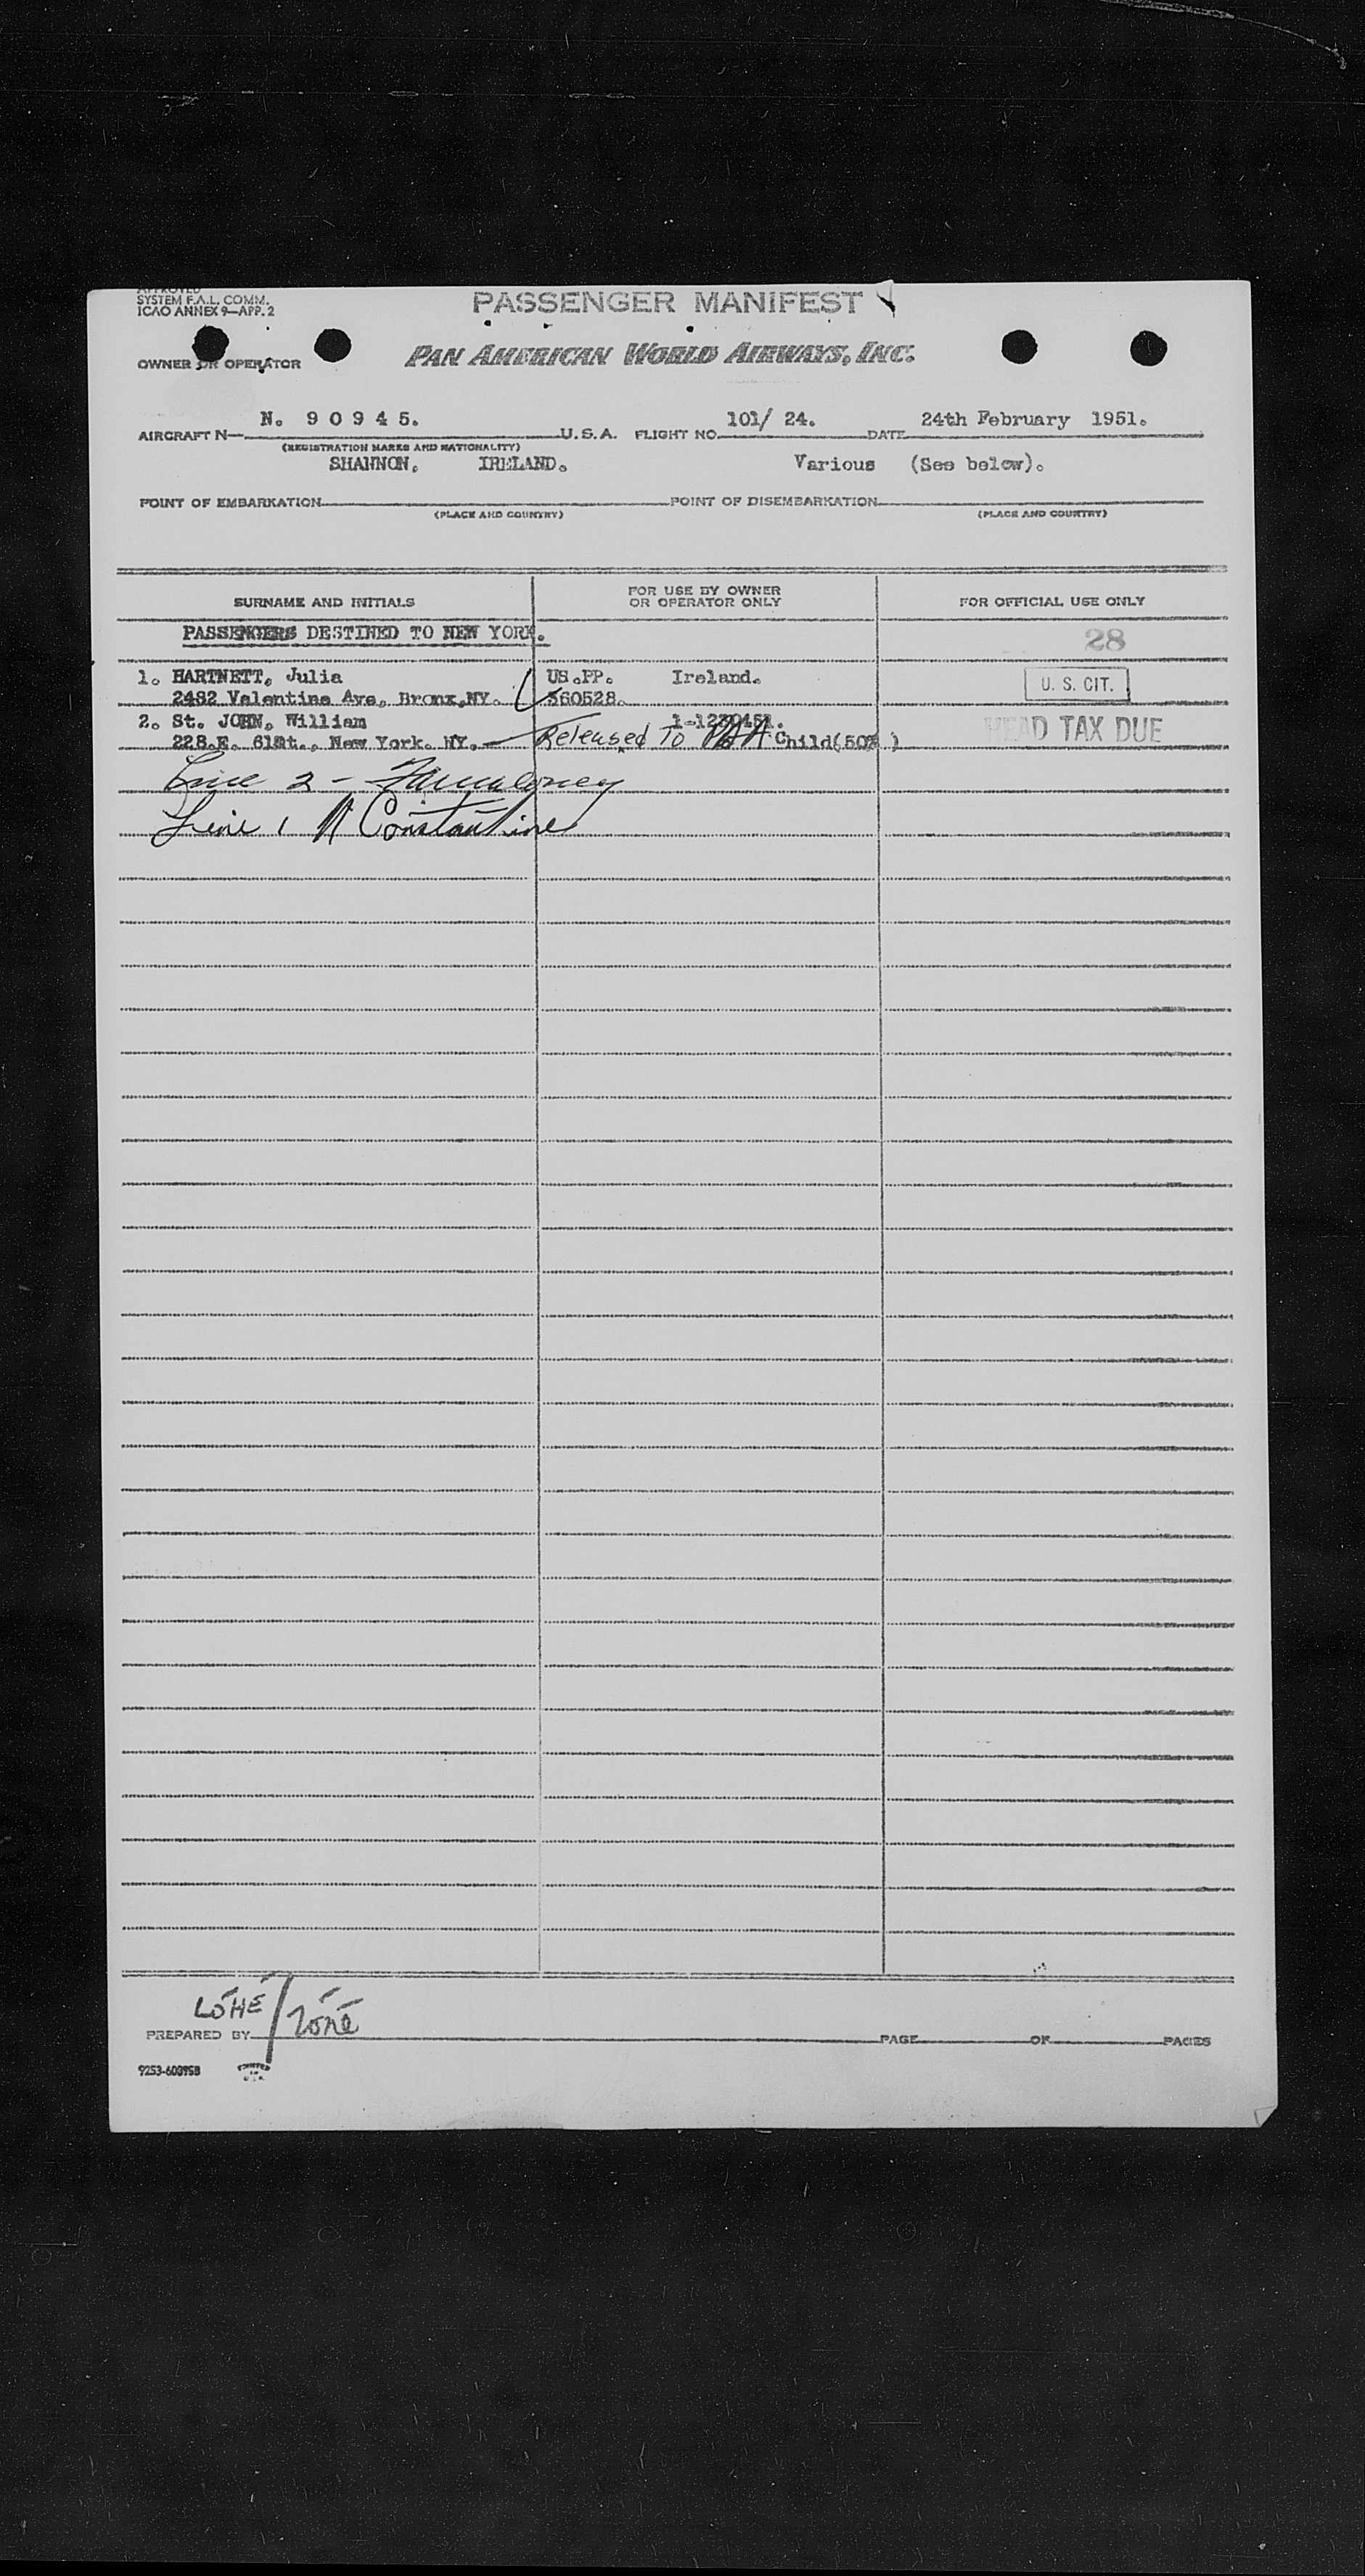 APPROVED
SYSTEM F.A.L. COMM.
ICAO ANNEX 9—APP. 2
PASSENGER MANIFEST
OWNER OR OPERATOR
PAN AMERICAN WORLD AIRWAYS, INC.
N. 9 0 9 4 5. 101/ 24. 24th February 1951.
AIRCRAFT N— U.S.A. FLIGHT NO. DATE
(REGISTRATION MARKS AND NATIONALITY)
SHANNON. IRELAND. Various (See below).
POINT OF EMBARKATION POINT OF DISEMBARKATION
(PLACE AND COUNTRY) (PLACE AND COUNTRY)
SURNAME AND INITIALS
FOR USE BY OWNER
OR OPERATOR ONLY
FOR OFFICIAL USE ONLY
PASSENGERS DESTINED TO NEW YORK. 28
1. HARTNETT, Julia US.PP. Ireland.
2482 Valentine Ave, Bronx,NY. 560528. U. S. CIT.
2. St. JOHN, William HEAD TAX DUE
228.E. 61st., New York. NY. Released to PAA Child(50% )
Line 2 -
Line 1 N Constantine
LOHE
PREPARED BY
PAGE OF PAGES
9253-60075B PRINTED
IN
U.S.A.